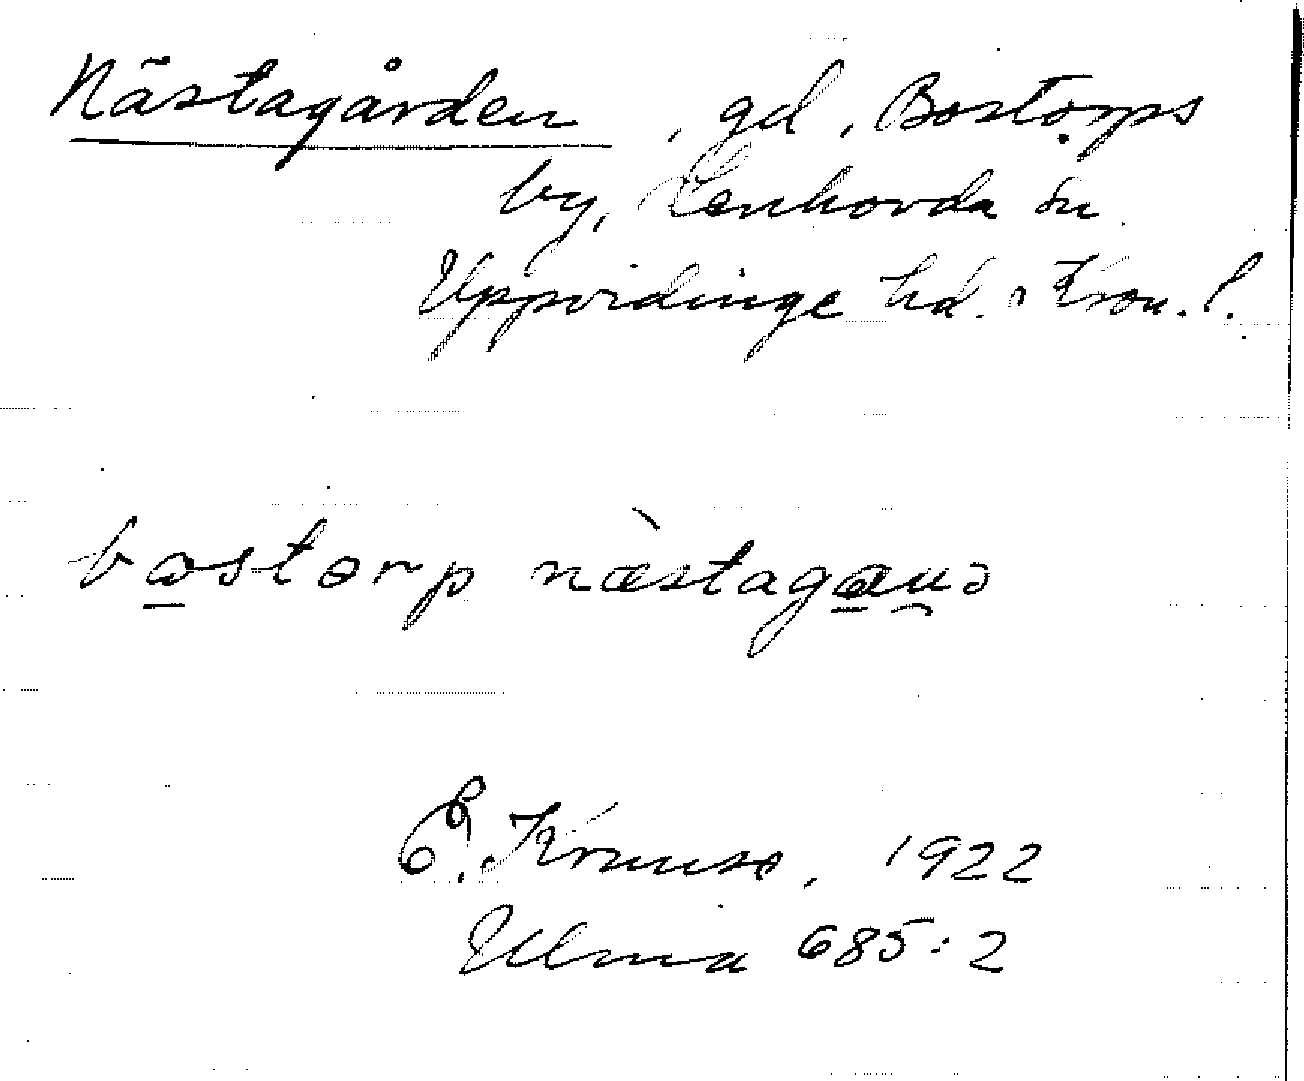 Nästagården, gd, Bostorps
by, Lenhovda sn
Uppvidinge hd. Kron. l.
bostorp næstag
E. Krause, 1922
Ulma 685:2